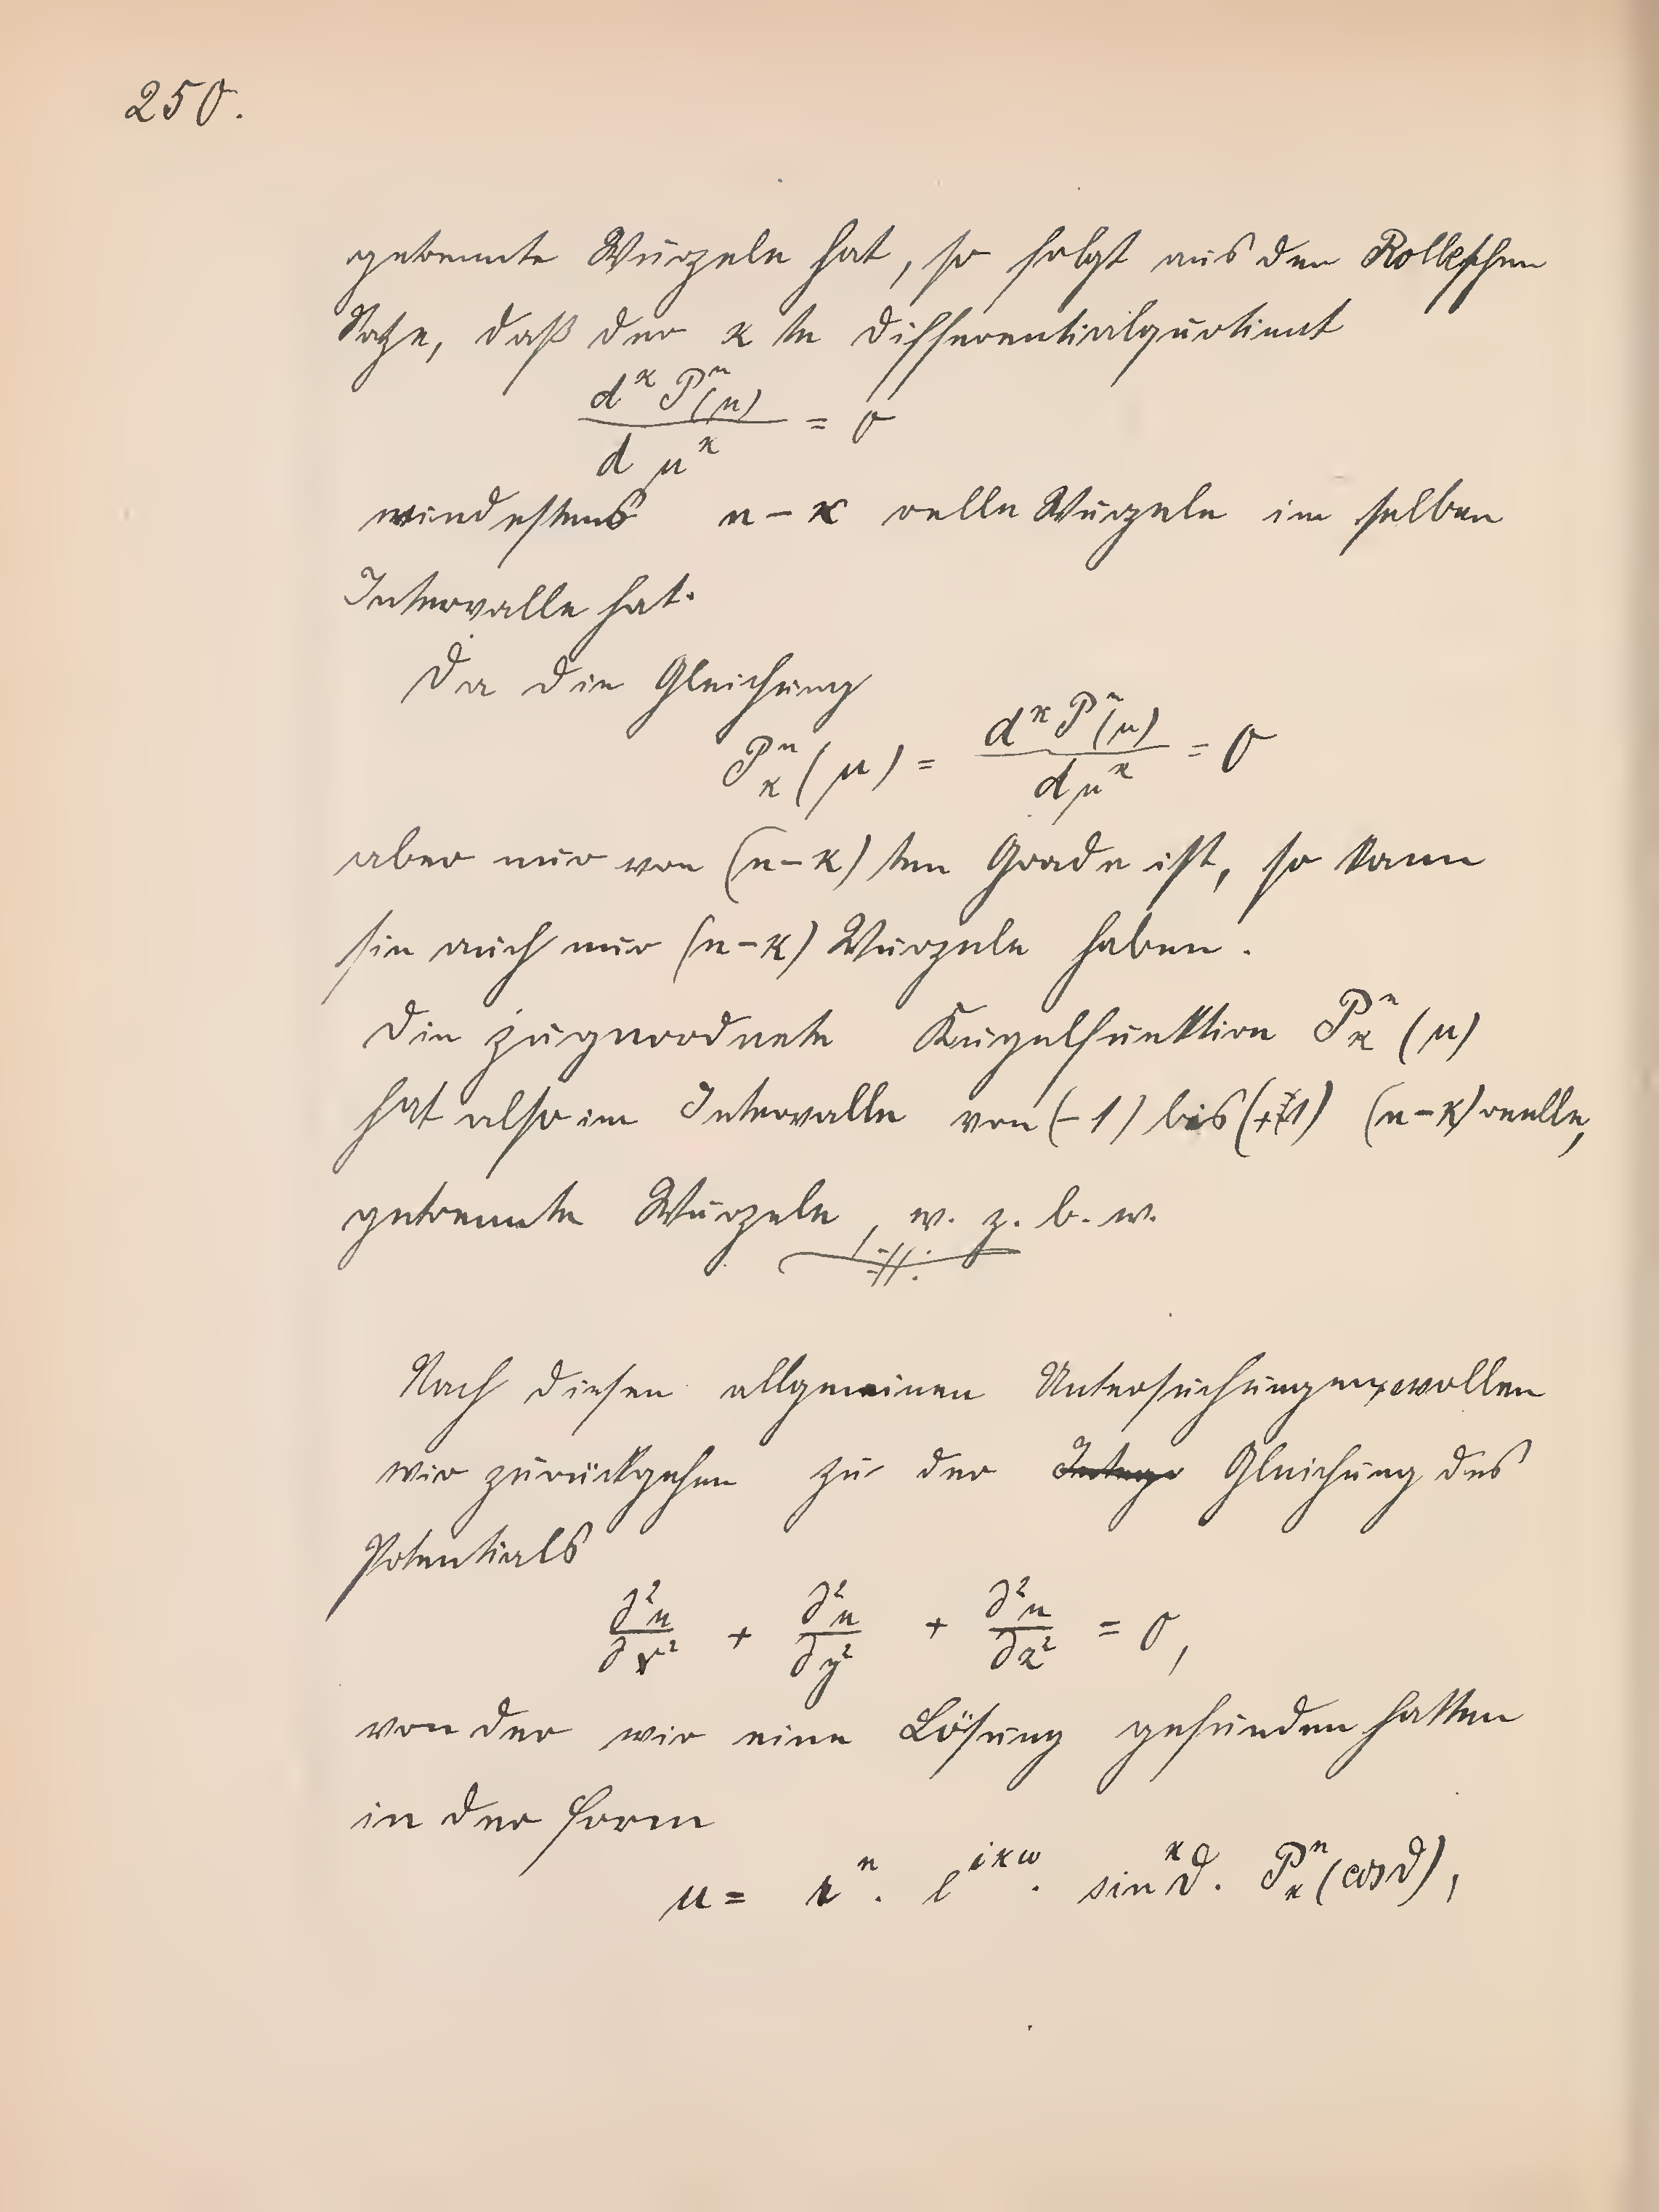 250.
getrennte Wurzeln hat, so folgt aus dem Rolleschen
Satze, daß der κ te Differentialquotient
d^κ P^n(μ) / d μ^κ = 0
mindestens n-κ reelle Wurzeln im selben
Intervalle hat.
Da die Gleichung
P^n_κ (μ) = d^κ P^n(μ) / dμ^κ = 0
aber nur von (n-κ) ten Grade ist, so kann
sie auch nur (n-κ) Wurzeln haben.
Die zugeordnete Kugelfunktion P^n_κ (μ)
hat also im Intervalle von (-1) bis (+1) (n-κ) reelle,
getrennte Wurzeln, w. z. b. w.
Nach diesen allgemeinen Untersuchungen wollen
wir zurückgehen zu der Gleichung des
Potentials
∂²u/∂x² + ∂²u/∂y² + ∂²u/∂z² = 0,
von der wir eine Lösung gefunden hatten
in der Form
u = r^n . e^{iκω} . sin^κ ϑ . P^n_κ (cos ϑ),